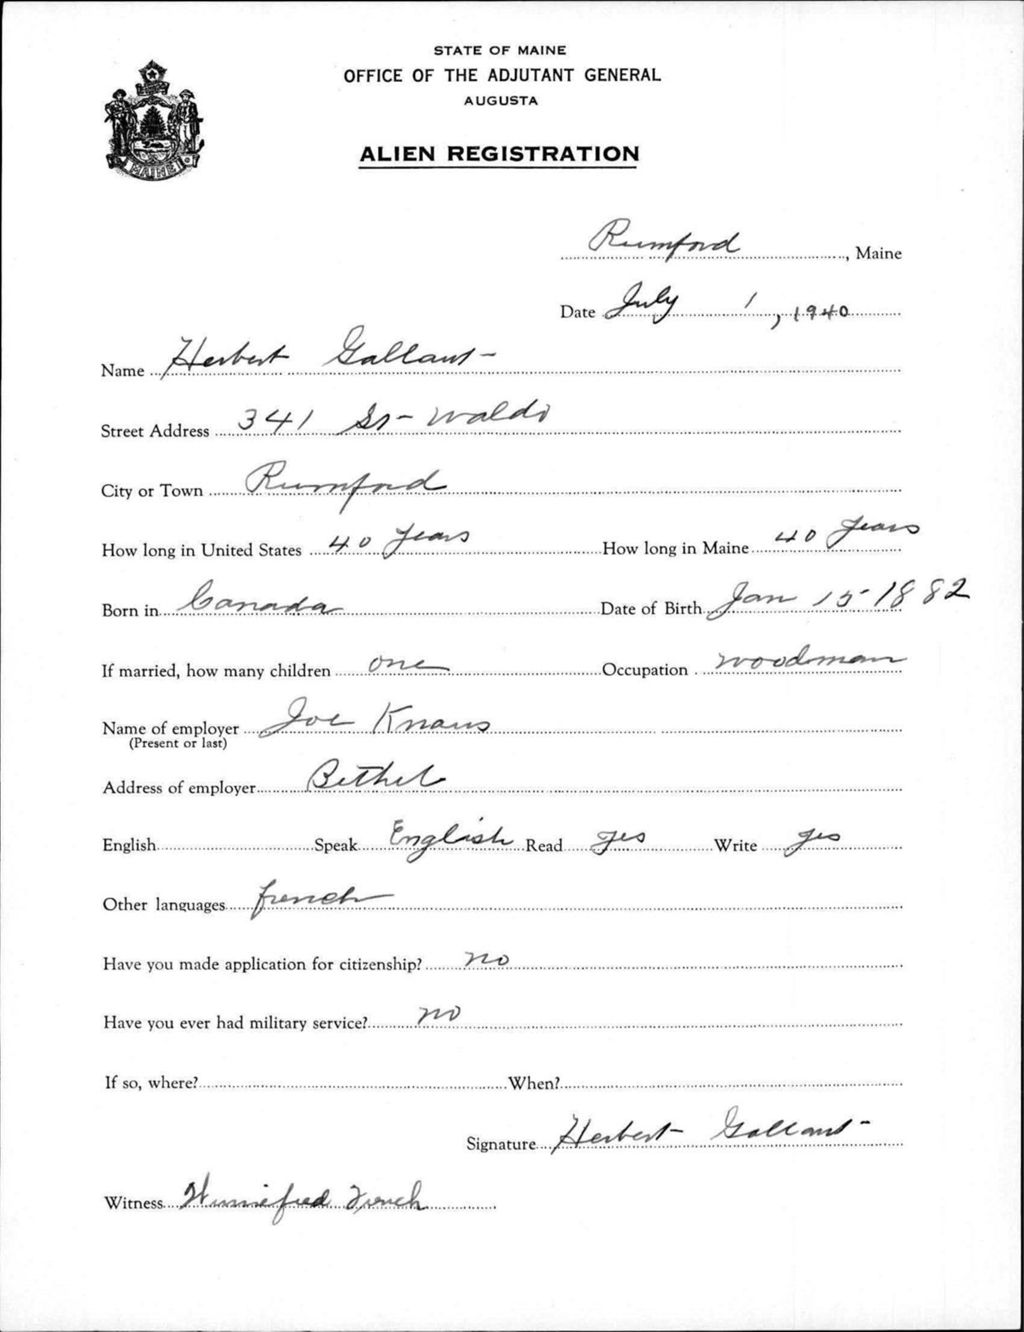 STATE OF MAINE
OFFICE OF THE ADJUTANT GENERAL
AUGUSTA
ALIEN REGISTRATION
MAINE
Rumford, Maine
Date July 1, 1940
Name Herbert Gallant
Street Address 341 Waldo
City or Town Rumford
How long in United States 40 years How long in Maine 40 years
Born in Canada Date of Birth Jan 15-1882
If married, how many children one Occupation woodman
Name of employer Joe Knaus
(Present or last)
Address of employer Bethel
English Speak English Read yes Write yes
Other languages french
Have you made application for citizenship? no
Have you ever had military service? no
If so, where? When?
Signature Herbert Gallant
Witness Winnifred French